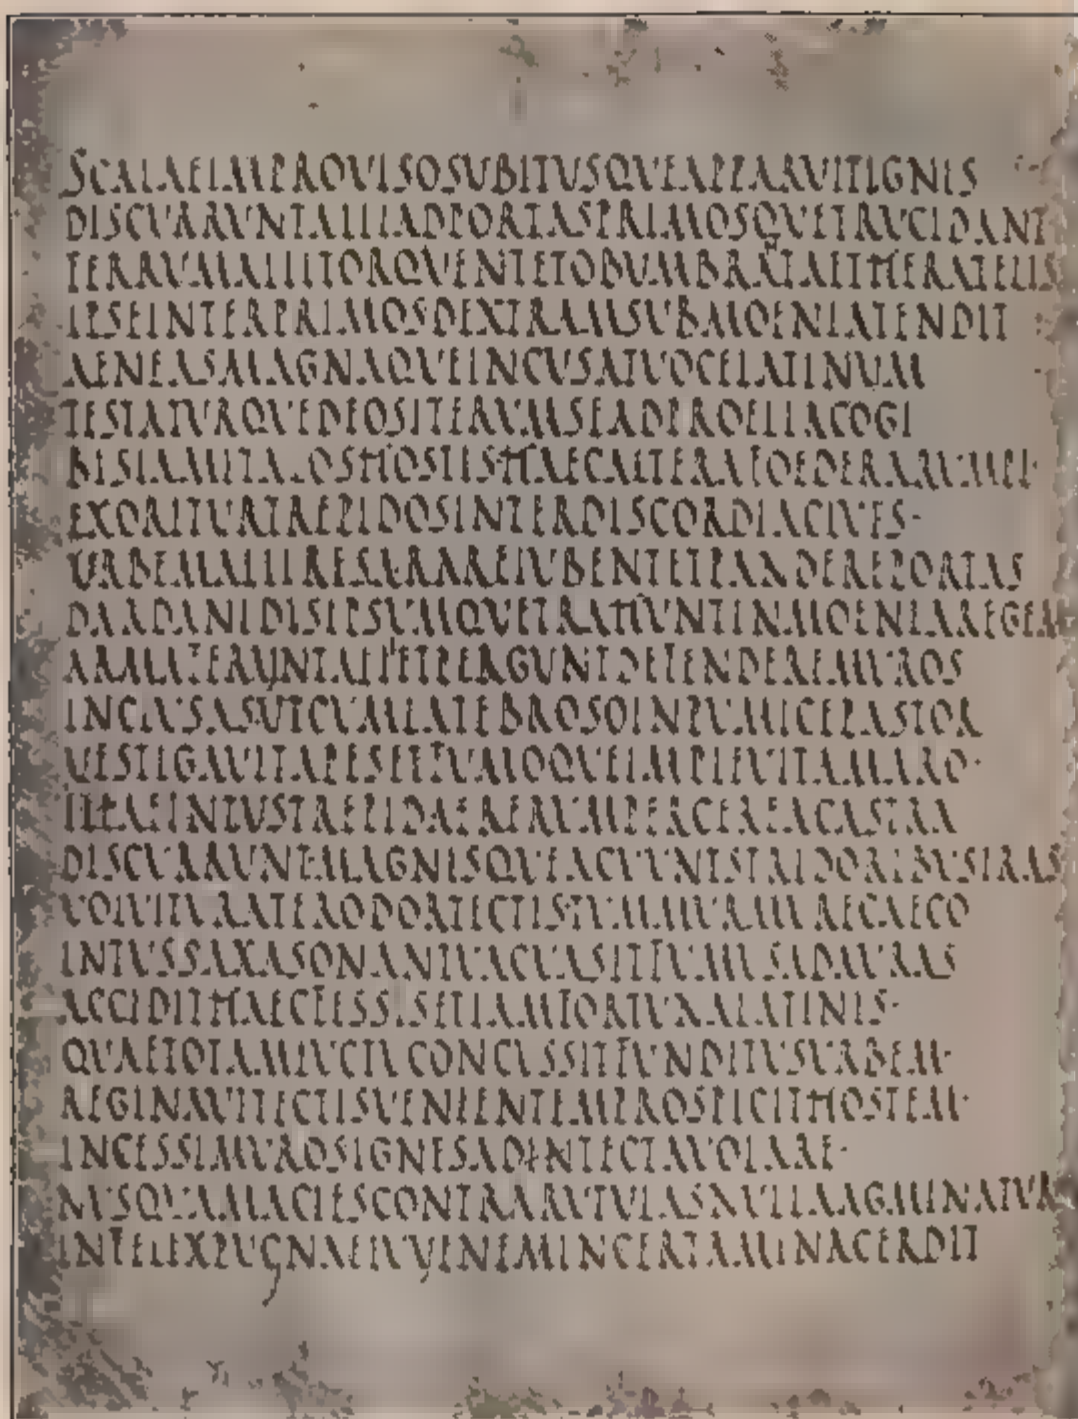 SCALAEIMPROVISOSUBITUSQVEAPPARVITIGNIS
DISCVRRVNTALIIADPORTASPRIMOSQVETRVCIDANT
FERRVMALIITORQVENTETOBUMBRANTAETHERATELIS
IPSEINTERPRIMOSDEXTRAMSVBMOENIATENDIT
AENEASMAGNAQVEINCVSATVOCELATINUM
TESTATVRQVEDEOSITERVMSEADPROELIACOGI
BISIAMITALOSHOSTISHAECALTERAFOEDERARVMPI·
EXORITVRTREPIDOSINTERDISCORDIACIVES·
VRBEMALIIRESERAREIVBENTETPANDEREPORTAS
DARDANIDISIPSVMQVETRAHVNTINMOENIAREGEM
ARMAFERVNTALIIETPERGUNTDEFENDEREMVROS
INCLVSASUTCVMLATEBROSOINPVMICEPASTOR
VESTIGAVITAPESETFVMOQVEIMPLEVITAMARO·
ILLAEINTVSTREPIDAERERVMPERCEREACASTRA
DISCVRRVNTMAGNISQVEACVVNTSTRIDORIBVSIRAS
VOLVITVRATERODORTECTISTVMMVRMVRECAECO
INTVSSAXASONANTVACVASITFVMVSADAVRAS
ACCIDITHAECFESSISETIAMFORTVNALATINIS·
QVAETOTAMLVCTVCONCVSSITFVNDITVSVRBEM·
REGINAVTTECTISVENIENTEMPROSPICITHOSTEM·
INCESSIMVROSIGNESADINTECTAVOLARE·
NVSQVAMACIESCONTRARVTVLASNVLLAAGMINATVR
INFELIXPVGNAEIVVENEMINCERTAMINACERDIT